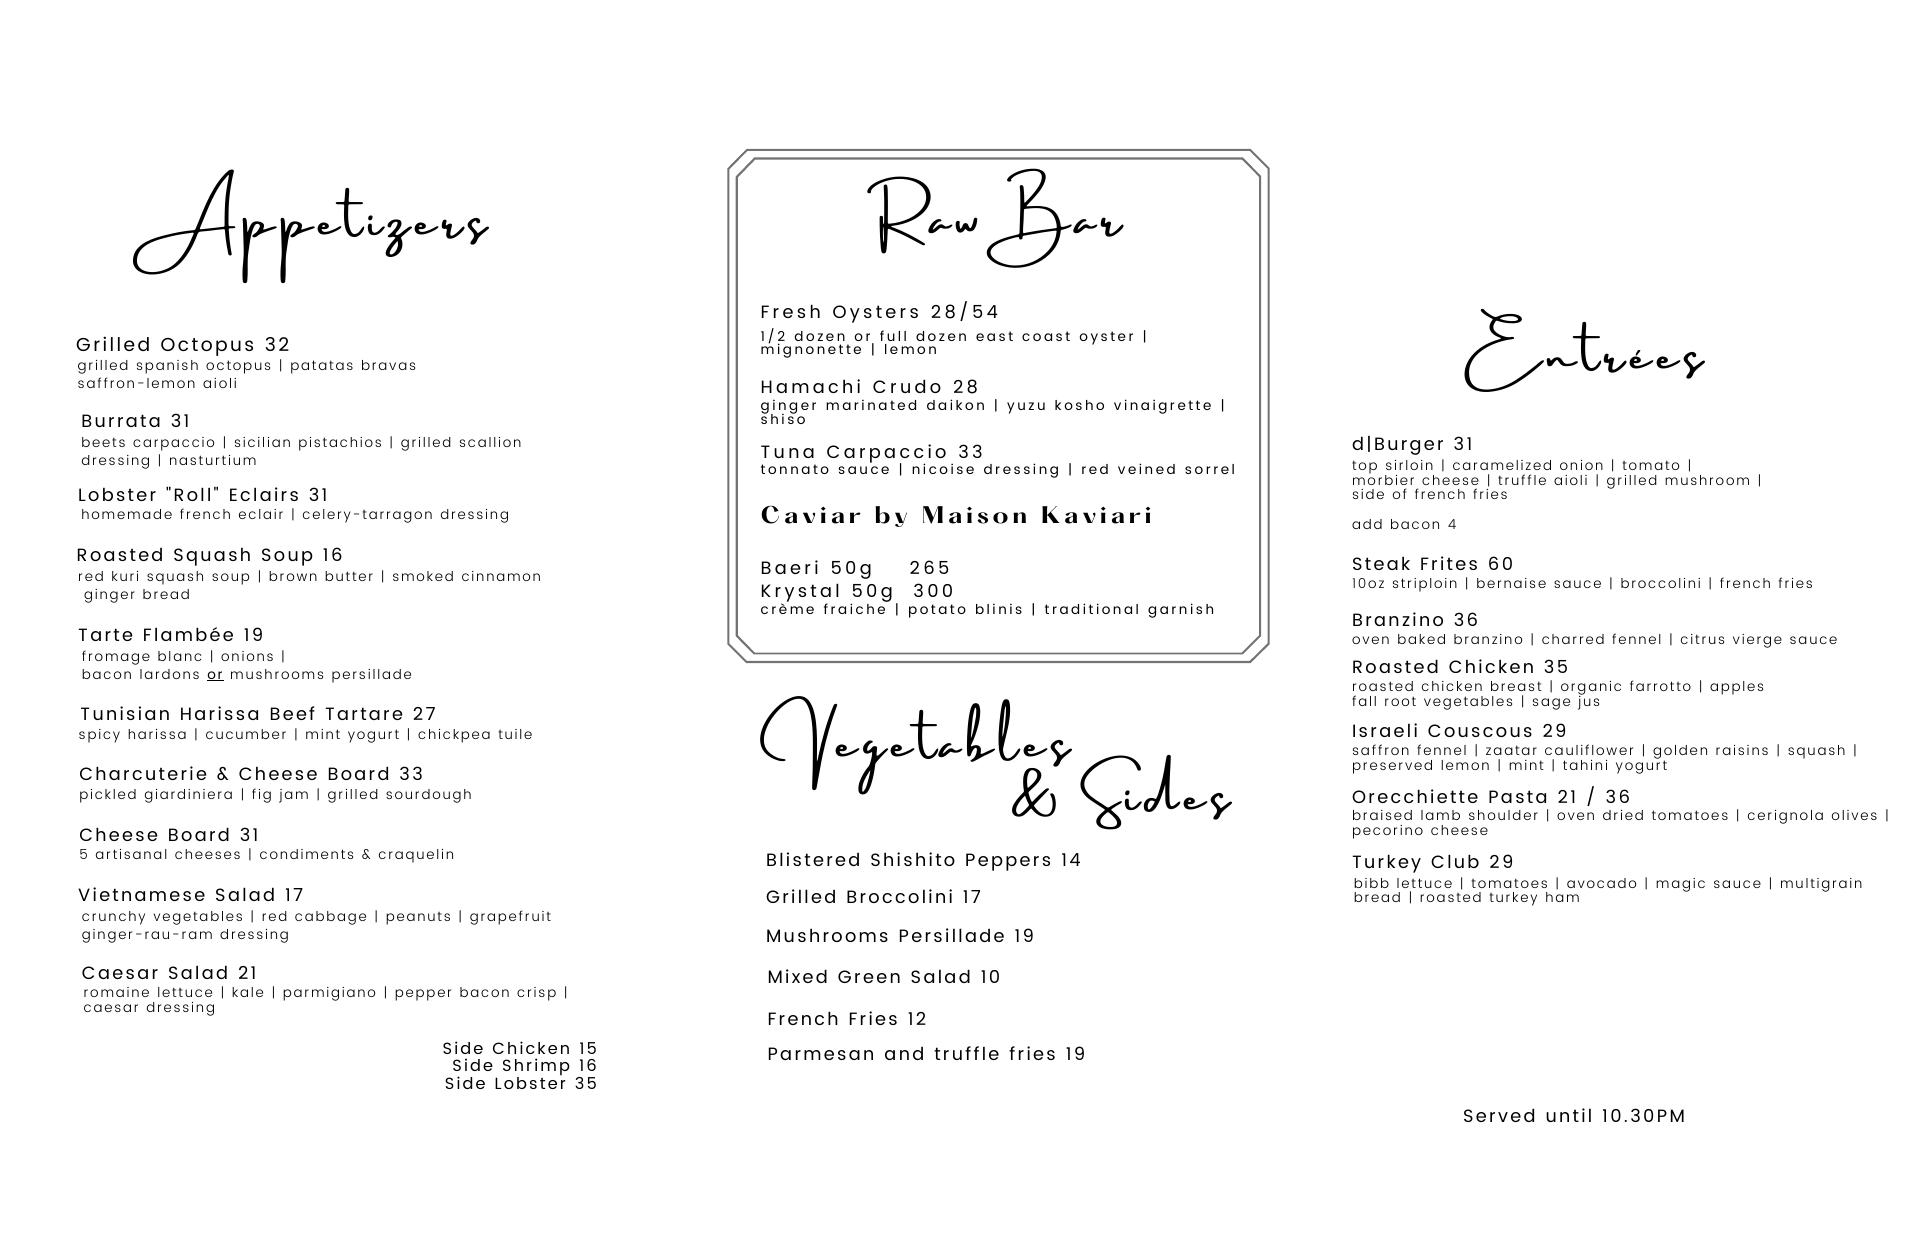 Appetizers
Grilled Octopus 32
grilled spanish octopus | patatas bravas
saffron-lemon aioli
Burrata 31
beets carpaccio | sicilian pistachios | grilled scallion
dressing | nasturtium
Lobster "Roll" Eclairs 31
homemade french eclair | celery-tarragon dressing
Roasted Squash Soup 16
red kuri squash soup | brown butter | smoked cinnamon
ginger bread
Tarte Flambée 19
fromage blanc | onions |
bacon lardons or mushrooms persillade
Tunisian Harissa Beef Tartare 27
spicy harissa | cucumber | mint yogurt | chickpea tuile
Charcuterie & Cheese Board 33
pickled giardiniera | fig jam | grilled sourdough
Cheese Board 31
5 artisanal cheeses | condiments & craquelin
Vietnamese Salad 17
crunchy vegetables | red cabbage | peanuts | grapefruit
ginger-rau-ram dressing
Caesar Salad 21
romaine lettuce | kale | parmigiano | pepper bacon crisp |
caesar dressing
Side Chicken 15
Side Shrimp 16
Side Lobster 35
Raw Bar
Fresh Oysters 28/54
1/2 dozen or full dozen east coast oyster |
mignonette | lemon
Hamachi Crudo 28
ginger marinated daikon | yuzu kosho vinaigrette |
shiso
Tuna Carpaccio 33
tonnato sauce | nicoise dressing | red veined sorrel
Caviar by Maison Kaviari
Baeri 50g 265
Krystal 50g 300
crème fraiche | potato blinis | traditional garnish
Vegetables
& Sides
Blistered Shishito Peppers 14
Grilled Broccolini 17
Mushrooms Persillade 19
Mixed Green Salad 10
French Fries 12
Parmesan and truffle fries 19
Entrées
d|Burger 31
top sirloin | caramelized onion | tomato |
morbier cheese | truffle aioli | grilled mushroom |
side of french fries
add bacon 4
Steak Frites 60
10oz striploin | bernaise sauce | broccolini | french fries
Branzino 36
oven baked branzino | charred fennel | citrus vierge sauce
Roasted Chicken 35
roasted chicken breast | organic farrotto | apples
fall root vegetables | sage jus
Israeli Couscous 29
saffron fennel | zaatar cauliflower | golden raisins | squash |
preserved lemon | mint | tahini yogurt
Orecchiette Pasta 21 / 36
braised lamb shoulder | oven dried tomatoes | cerignola olives |
pecorino cheese
Turkey Club 29
bibb lettuce | tomatoes | avocado | magic sauce | multigrain
bread | roasted turkey ham
Served until 10.30PM